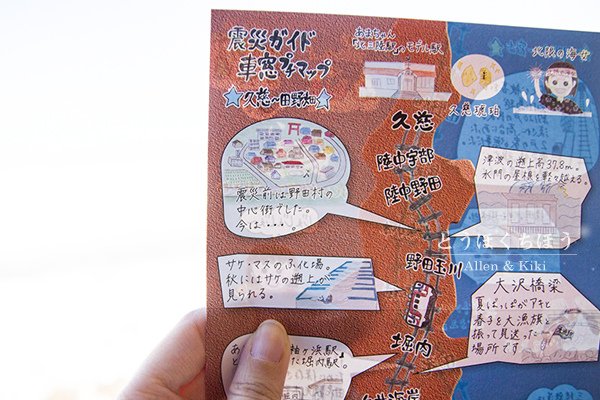 震災ガイド
車窓プチマップ
久慈~田野畑
あまちゃん
のモデル駅
北限の海女
久慈琥珀
久慈
陸中宇部
陸中野田
津波の遡上高37.8m。
水門の屋根を軽々越える。
震災前は野田村の
中心街でした。
今は・・・。
とうほくちほう
Allen & Kiki
野田玉川
サケ・マスのふ化場。
秋にはサケの遡上が
見られる。
大沢橋梁
夏ばっぱがアキと
春子を大漁旗を
振って見送った
場所です
堀内
袖ヶ浜駅
堀内駅